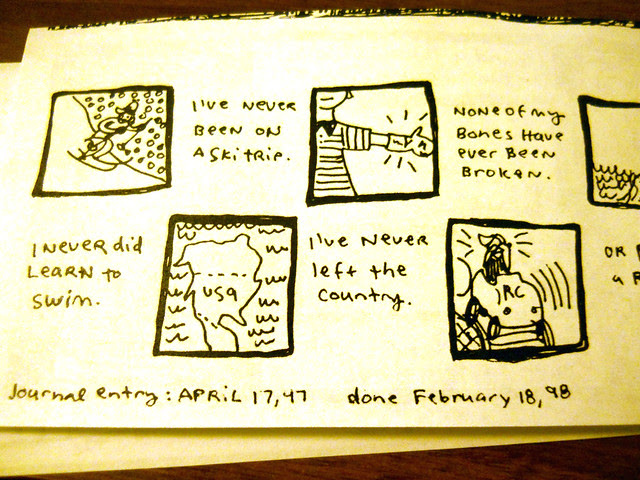 I've never
been on
a ski trip.
None of my
Bones Have
ever Been
Broken.
I never did
Learn to
swim.
USA
I've never
left the
country.
RC
OR
a
Journal entry: APRIL 17, 97
done February 18, 98